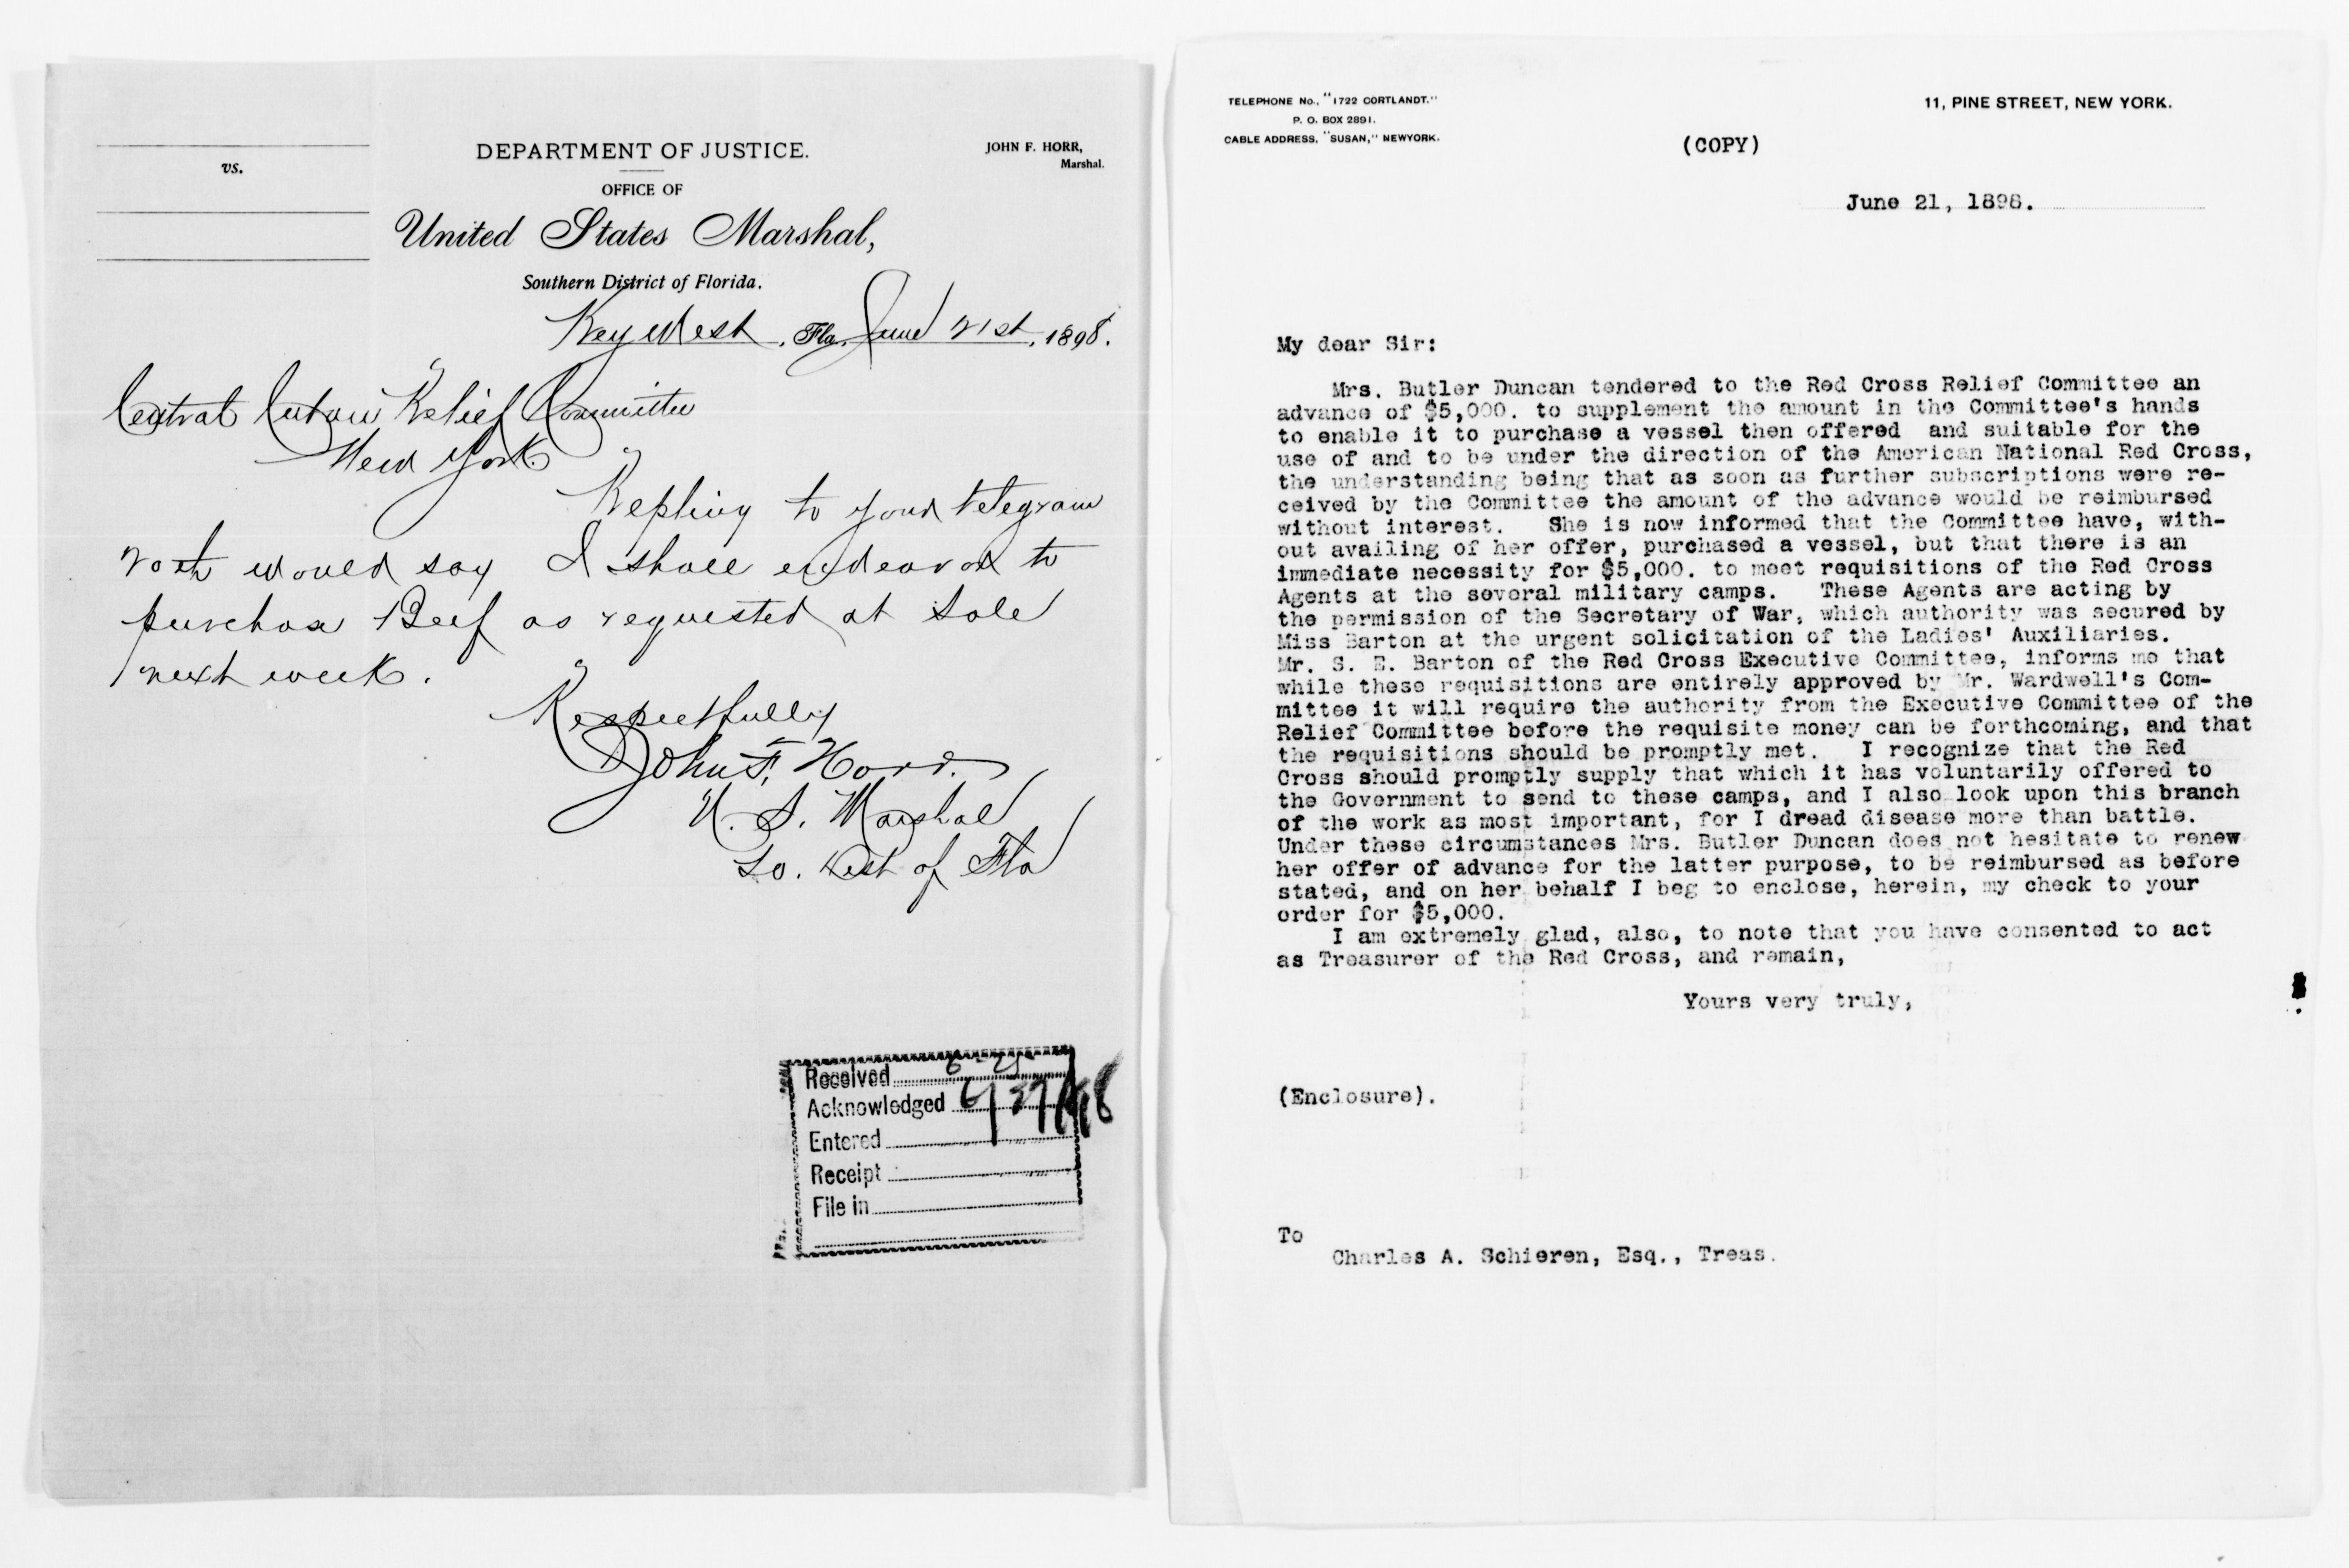 vs.
DEPARTMENT OF JUSTICE.
OFFICE OF
United States Marshal,
Southern District of Florida.
JOHN F. HORR,
Marshal.
Key West, Fla. June 21st, 1898.
Central Cuban Relief Committee
New York
Repliing to your telegram
20th would say I shall endeavor to
purchase Beef as requested at Sale
next week.
Respectfully
John F. Horr.
U. S. Marshal
So. Dist of Fla
Received 6-25
Acknowledged 6/27/98
Entered
Receipt
File in
TELEPHONE No., "1722 CORTLANDT."
P. O. BOX 2891.
CABLE ADDRESS, "SUSAN," NEWYORK.
11, PINE STREET, NEW YORK.
(COPY)
June 21, 1898.
My dear Sir:
Mrs. Butler Duncan tendered to the Red Cross Relief Committee an
advance of $5,000. to supplement the amount in the Committee's hands
to enable it to purchase a vessel then offered and suitable for the
use of and to be under the direction of the American National Red Cross,
the understanding being that as soon as further subscriptions were re-
ceived by the Committee the amount of the advance would be reimbursed
without interest. She is now informed that the Committee have, with-
out availing of her offer, purchased a vessel, but that there is an
immediate necessity for $5,000. to meet requisitions of the Red Cross
Agents at the several military camps. These Agents are acting by
the permission of the Secretary of War, which authority was secured by
Miss Barton at the urgent solicitation of the Ladies' Auxiliaries.
Mr. S. E. Barton of the Red Cross Executive Committee, informs me that
while these requisitions are entirely approved by Mr. Wardwell's Com-
mittee it will require the authority from the Executive Committee of the
Relief Committee before the requisite money can be forthcoming, and that
the requisitions should be promptly met. I recognize that the Red
Cross should promptly supply that which it has voluntarily offered to
the Government to send to these camps, and I also look upon this branch
of the work as most important, for I dread disease more than battle.
Under these circumstances Mrs. Butler Duncan does not hesitate to renew
her offer of advance for the latter purpose, to be reimbursed as before
stated, and on her behalf I beg to enclose, herein, my check to your
order for $5,000.
I am extremely glad, also, to note that you have consented to act
as Treasurer of the Red Cross, and remain,
Yours very truly,
(Enclosure).
To
Charles A. Schieren, Esq., Treas.